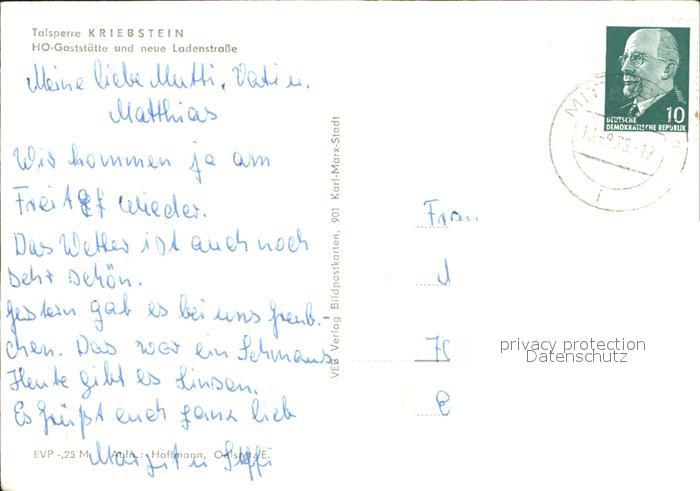 Talsperre KRIEBSTEIN
HO-Gaststätte und neue Ladenstraße
Meine liebe Mutti, Vati u.
Matthias
Wir kommen ja am
Freitag wieder.
Das Wetter ist auch noch
sehr schön.
Gestern gab es bei uns
chen. Das war ein Schmaus
Heute gibt es Linsen.
Es grüßt euch ganz lieb
Margit u Steffi
EVP -,25 M Aufn.: Hoffmann, Oelsnitz/E.
VEB Verlag Bildpostkarten, 901 Karl-Marx-Stadt
10
DEUTSCHE
DEMOKRATISCHE REPUBLIK
Frau
privacy protection
Datenschutz